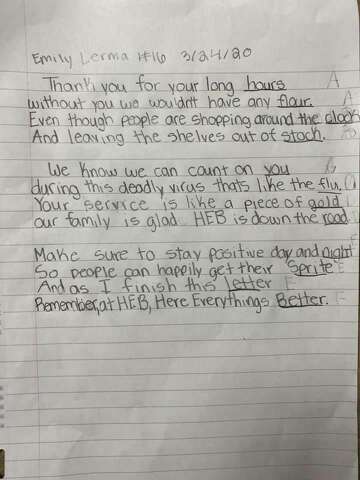 Emily Lerma #16 3/24/20
Thank you for your long hours A
without you we wouldn't have any flour. A
Even though people are shopping around the clock
And leaving the shelves out of stock.
We know we can count on you
during this deadly virus thats like the flu.
Your service is like a piece of gold
our family is glad HEB is down the road
Make sure to stay positive day and night
So people can happily get their Sprite E
And as I finish this letter F
Remember, at HEB, Here Everythings Better. F